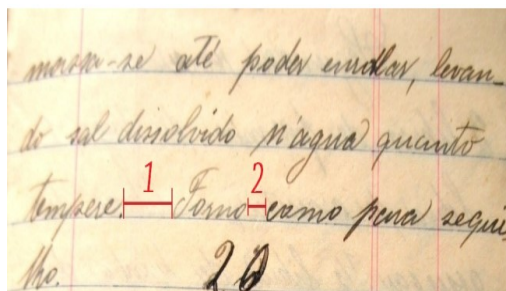 massa-se até poder enrollar, levan-
do sal dissolvido n'agua quanto
1 2
tempere. Forno como para sequi-
lho. 20